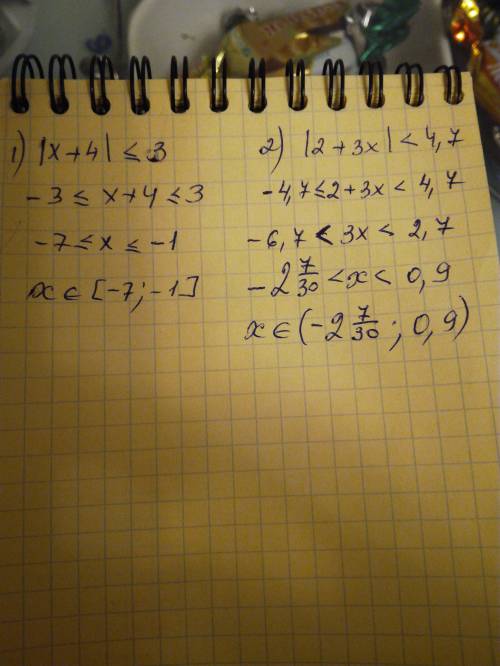 1) |x+4| ≤ 3
-3 ≤ x+4 ≤ 3
-7 ≤ x ≤ -1
x ∈ [-7; -1]
2) |2+3x| < 4,7
-4,7 ≤ 2+3x < 4,7
-6,7 < 3x < 2,7
-2 7/30 < x < 0,9
x ∈ (-2 7/30; 0,9)